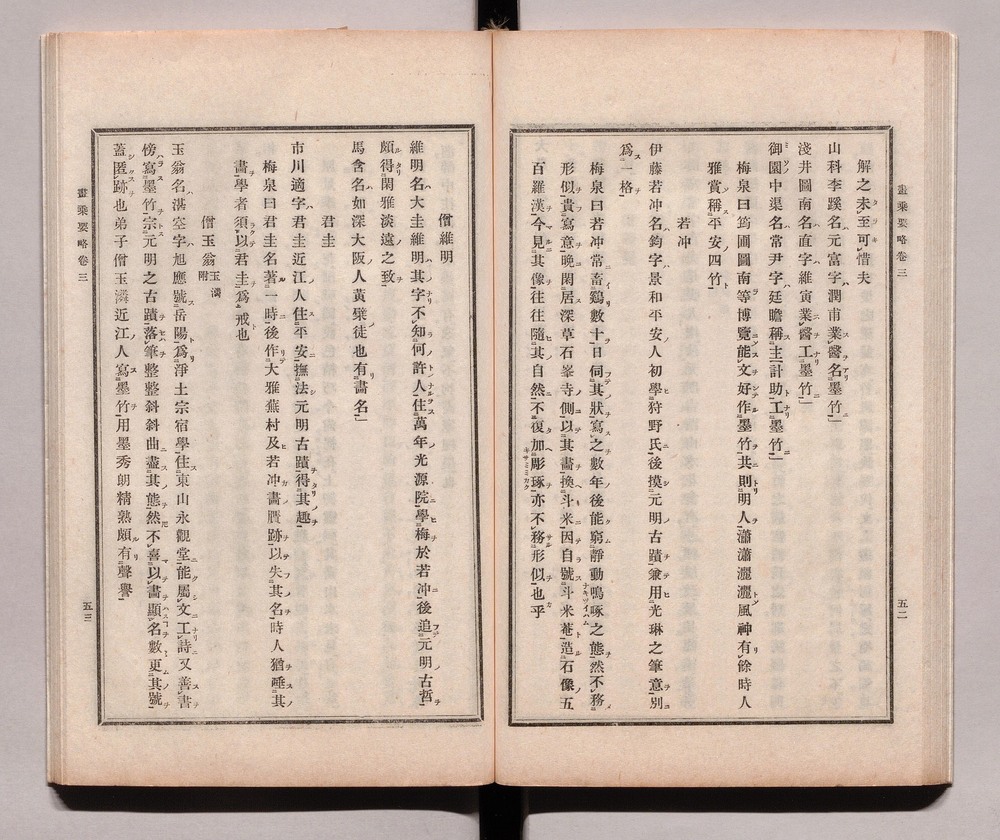 畫乘要略卷三
五二
解之未至可惜夫
山科李蹊名元富字潤甫業醫名墨竹
淺井圖南名直字維寅業醫工墨竹
御園中渠名常尹字廷瞻稱主計助工墨竹
梅泉曰筠圃圖南等博覽能文好作墨竹其則明人瀟瀟灑灑風神有餘時人
雅賞稱平安四竹
若冲
伊藤若冲名鈞字景和平安人初學狩野氏後摸元明古蹟兼用光琳之筆意別
爲一格
梅泉曰若冲常畜鷄數十日伺其狀寫之數年後能窮靜動鳴啄之態然不務
形似貴寫意晚閑居深草石峯寺側以其畵換斗米因自號斗米菴造石像五
百羅漢今見其像往往隨其自然不復加彫琢亦不務形似也乎
僧維明
維明名大圭維明其字不知何許人住萬年光源院學梅於若冲後追元明古哲
頗得閑雅淡遠之致
馬含名如深大阪人黃檗徒也有畵名
君圭
市川適字君圭近江人住平安撫法元明古蹟得其趣
梅泉曰君圭名著一時後作大雅蕪村及若冲畵贋跡以失其名時人猶唾其
畵學者須以君圭爲戒也
僧玉翁 玉潾附
玉翁名湛空字旭應號岳陽爲淨土宗宿學住東山永觀堂能屬文工詩又善書
傍寫墨竹宗元明之古蹟落筆整整斜斜曲盡其態然不喜以書顯名數更其號
蓋匿跡也弟子僧玉潾近江人寫墨竹用墨秀朗精熟頗有聲譽
畫乘要略卷三
五三